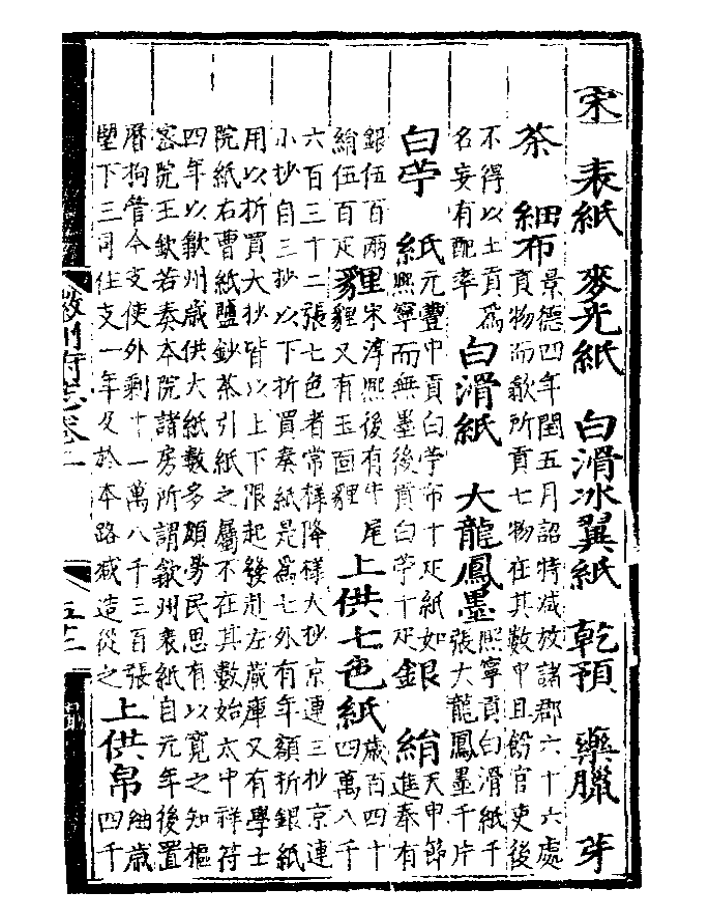 宋 表紙 麥光紙 白滑冰翼紙 乾預 藥臘 芽
茶 細布
景德四年閏五月詔特減放諸郡六十六處
貢物而歙所貢七物在其數中且飭官吏後
不得以土貢爲
名妄有配率
白滑紙 大龍鳳墨
熙寧貢白滑紙千
張大龍鳳墨千片
白苧 紙
元豐中貢白苧布十疋紙如
熙寧而無墨後貢白苧十疋
銀 絹
天申節
進奉有
銀伍百兩
絹伍百疋
貍
宋淳熙後有牛尾
貍又有玉面貍
上供七色紙
歲百四十
四萬八千
六百三十二張七色者常樣降樣大抄京連三抄京連
小抄自三抄以下折買奏紙是爲七外有年額折銀紙
用以折買大抄皆以上下限起發赴左藏庫又有學士
院紙右曹紙鹽鈔茶引紙之屬不在其數始太中祥符
四年以歙州歲供大紙數多頗勞民思有以寬之知樞
密院王欽若奏本院諸房所謂歙州表紙自元年後置
曆拘管今支使外剩十一萬八千三百張
下三司住支一年及於本路減造從之
上供帛
紬歲
四千
徽州府志卷二